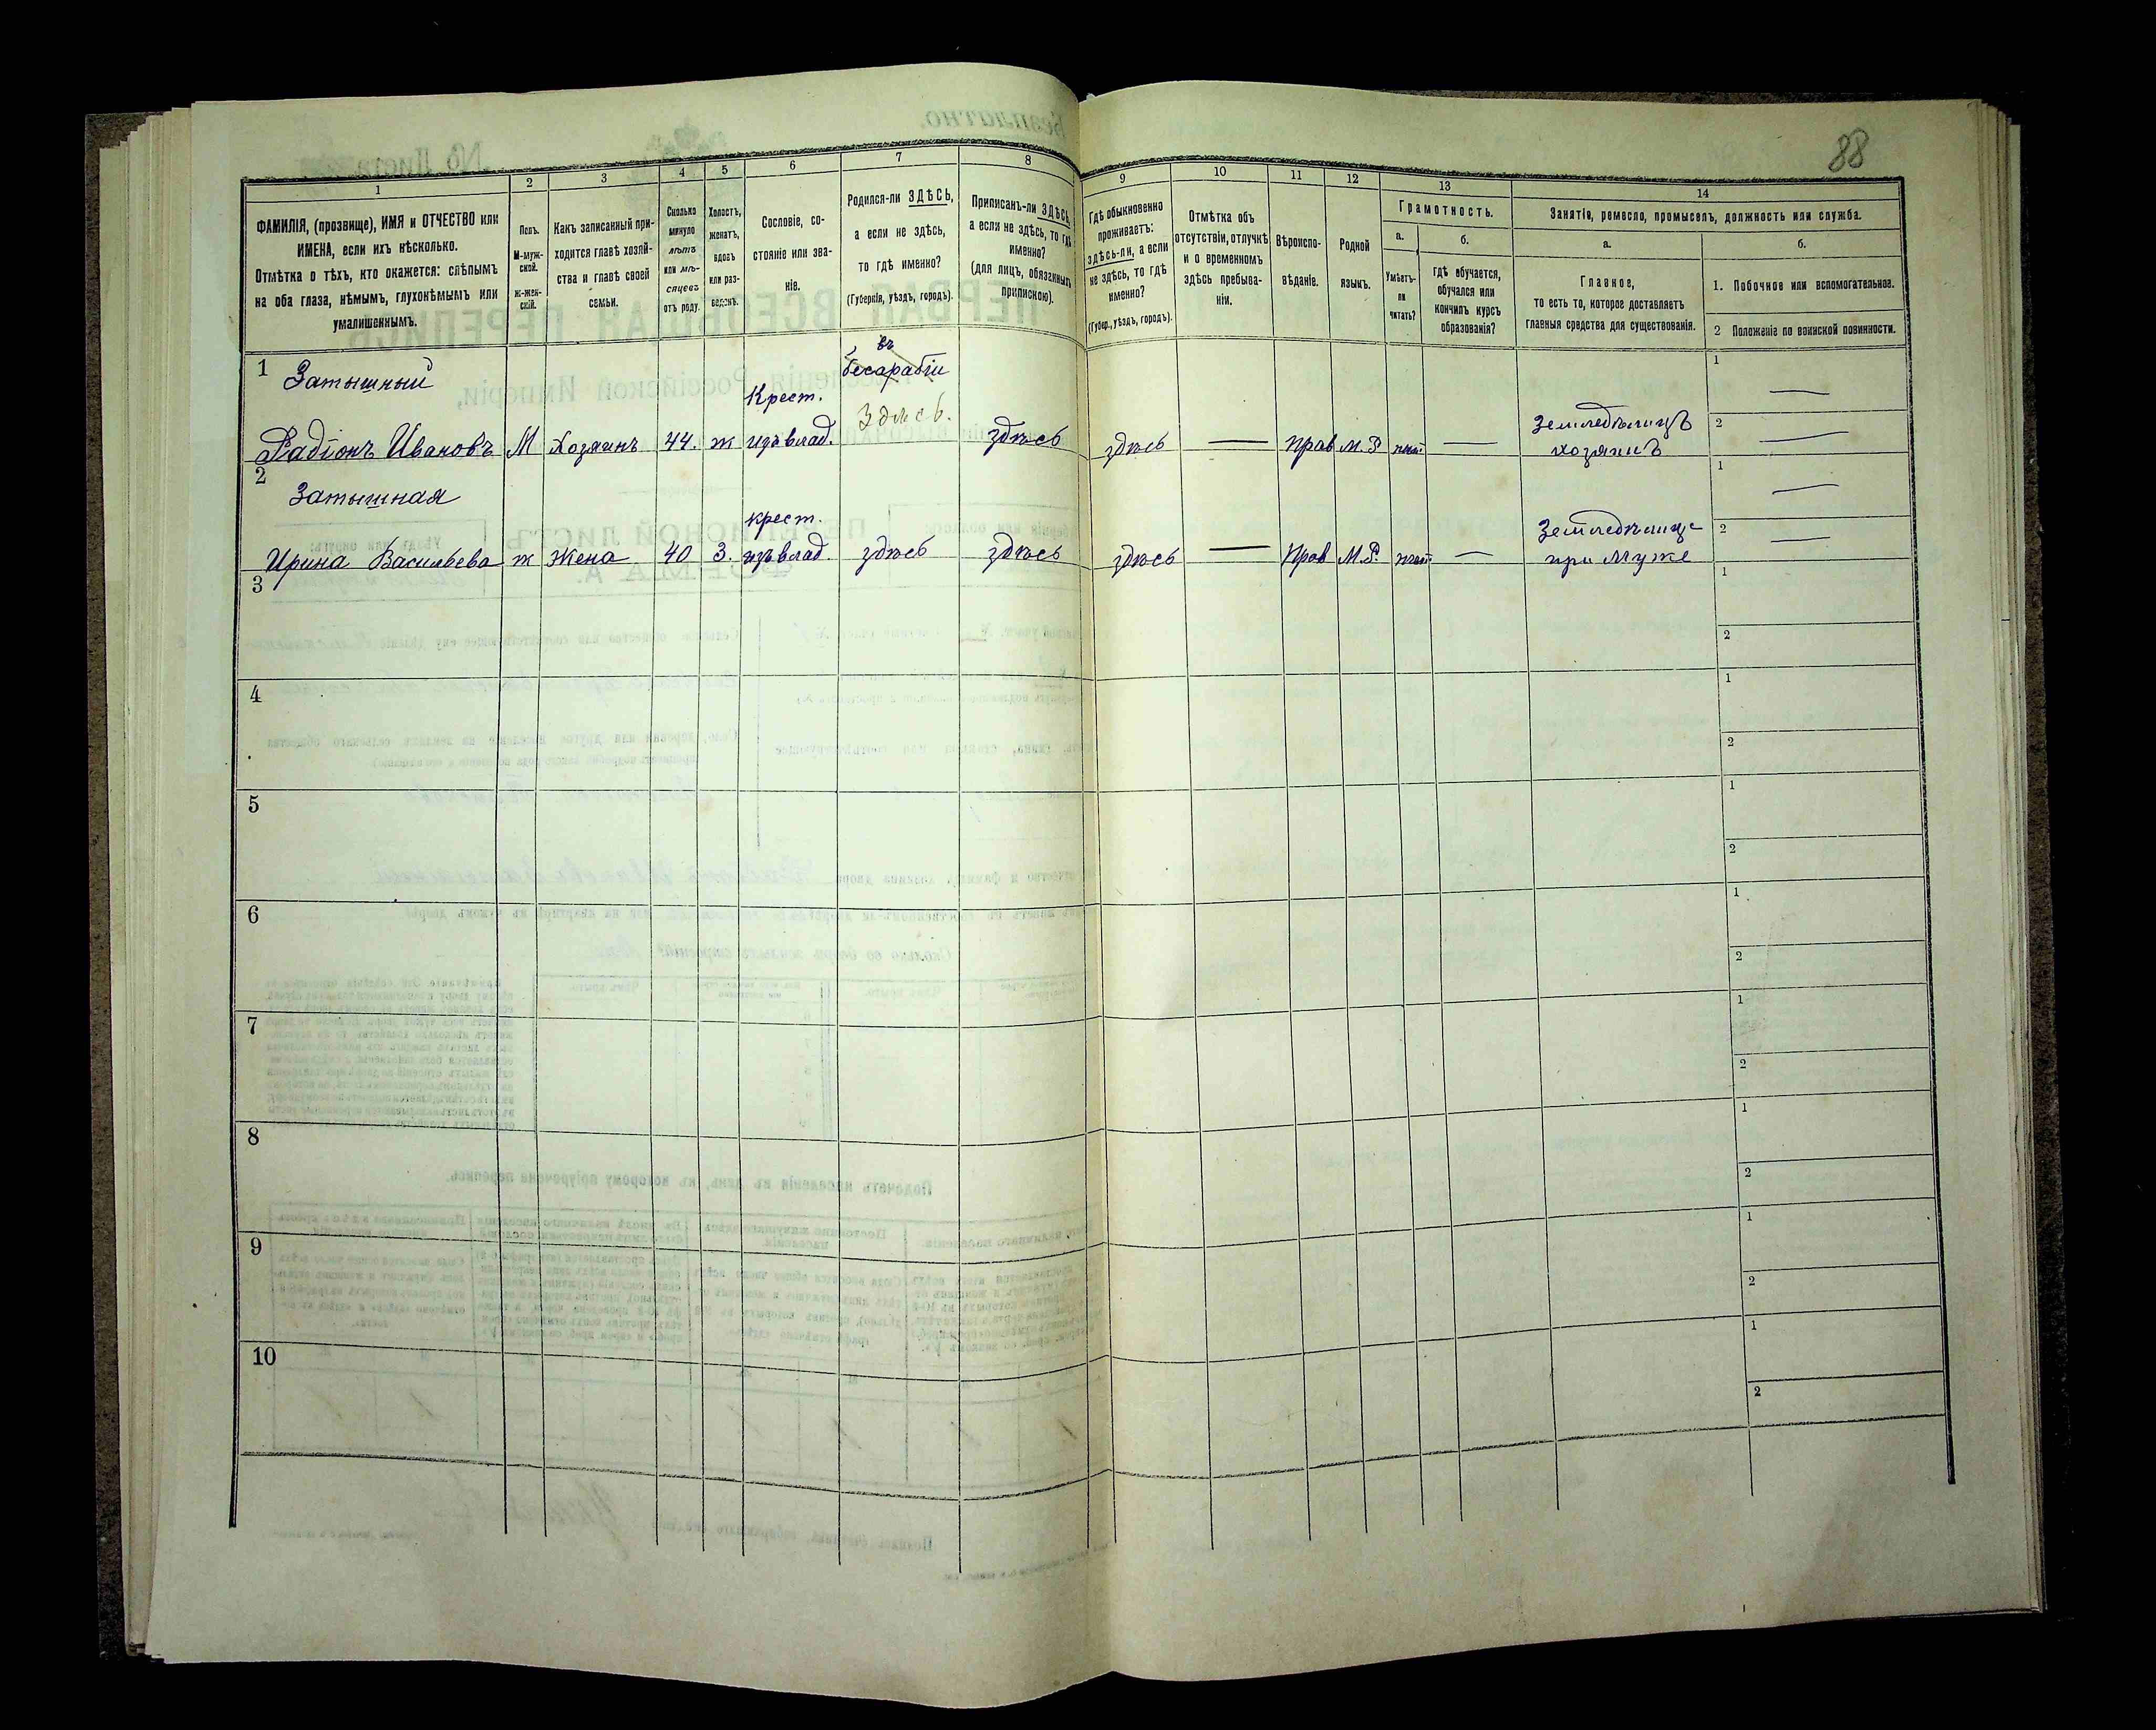 88
1
2
3
4
5
6
7
8
9
10
11
12
13
14
ФАМИЛІЯ, (прозвище), ИМЯ и ОТЧЕСТВО или
ИМЕНА, если ихъ нѣсколько.
Отмѣтка о тѣхъ, кто окажется: слѣпымъ
на оба глаза, нѣмымъ, глухонѣмымъ или
умалишеннымъ.
Полъ.
М-муж-
ской.
ж-жен-
скій.
Какъ записанный при-
ходится главѣ хозяй-
ства и главѣ своей
семьи.
Сколько
минуло
лѣтъ
или мѣ-
сяцевъ
отъ роду.
Холостъ,
женатъ,
вдовъ
или раз-
веденъ.
Сословіе, со-
стояніе или зва-
ніе.
Родился-ли ЗДѢСЬ,
а если не здѣсь,
то гдѣ именно?
(Губернія, уѣздъ, городъ).
Приписанъ-ли ЗДѢСЬ,
а если не здѣсь, то гдѣ
именно?
(для лицъ, обязанныхъ
припискою).
Гдѣ обыкновенно
проживаетъ:
здѣсь-ли, а если
не здѣсь, то гдѣ
именно?
(Губер., уѣздъ, городъ).
Отмѣтка объ
отсутствіи, отлучкѣ
и о временномъ
здѣсь пребыва-
ніи.
Вѣроиспо-
вѣданіе.
Родной
языкъ.
Грамотность.
а.
Умѣетъ-
ли
читать?
б.
Гдѣ обучается,
обучался или
кончилъ курсъ
образованія?
Занятіе, ремесло, промыселъ, должность или служба.
а.
Главное,
то есть то, которое доставляетъ
главныя средства для существованія.
б.
1. Побочное или вспомогательное.
2 Положеніе по воинской повинности.
1 Затышный
Радіонъ Ивановъ М Хозяинъ 44. ж
Крест.
изъ влад.
въ
бесарабіи
Здѣсь.
здѣсь здѣсь — Прав М. Р нѣт —
Земледѣлицъ
хозяинъ
1 —
2 —
2 Затышная
Ирина Васильева ж Жена 40 З.
крест.
изъ влад. здѣсь здѣсь здѣсь — Прав М. Р. нѣт —
Земледѣлице
при Муже
1 —
2 —
3
1
2
4
1
2
5
1
2
6
1
2
7
1
2
8
1
2
9
1
2
10
1
2